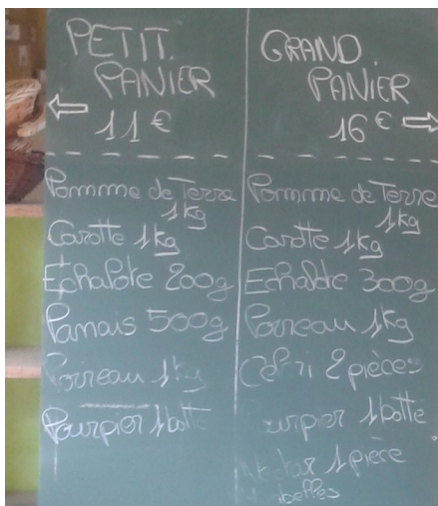 PETIT.
PANIER
11€
Pommme de Terre
1kg
Carotte 1kg
Echalote 200g
Panais 500g
Poireau 1kg
Pourpier 1 botte
GRAND.
PANIER
16€
Pommme de Terre
1kg
Carotte 1kg
Echalote 300g
Poireau 1kg
Céleri 2 pièces
Pourpier 1 botte
1 pièce